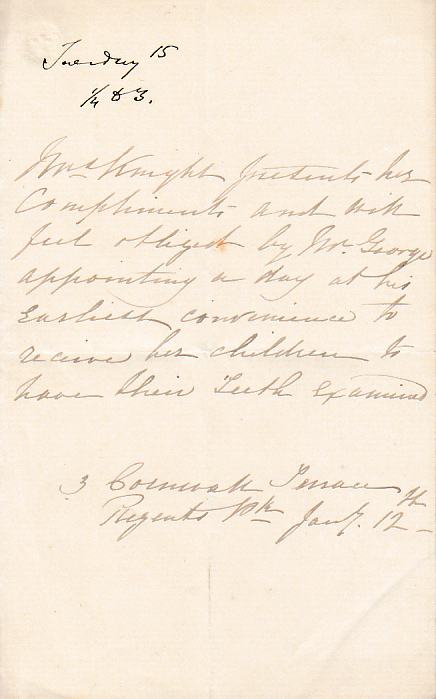 Tuesday 15
1/4 to 3.
Mrs Knight presents her
Compliments and will
feel obliged by Mr. George
appointing a day at his
earliest convenience to
receive her children to
have their Teeth examined
3 Cornwall Terrace
Regents Pk Jany. 12th